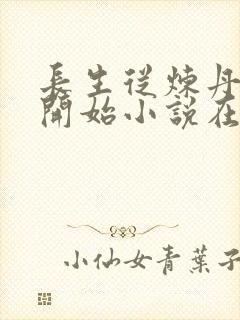 長生從煉丹
開始小說在
小仙女青葉子